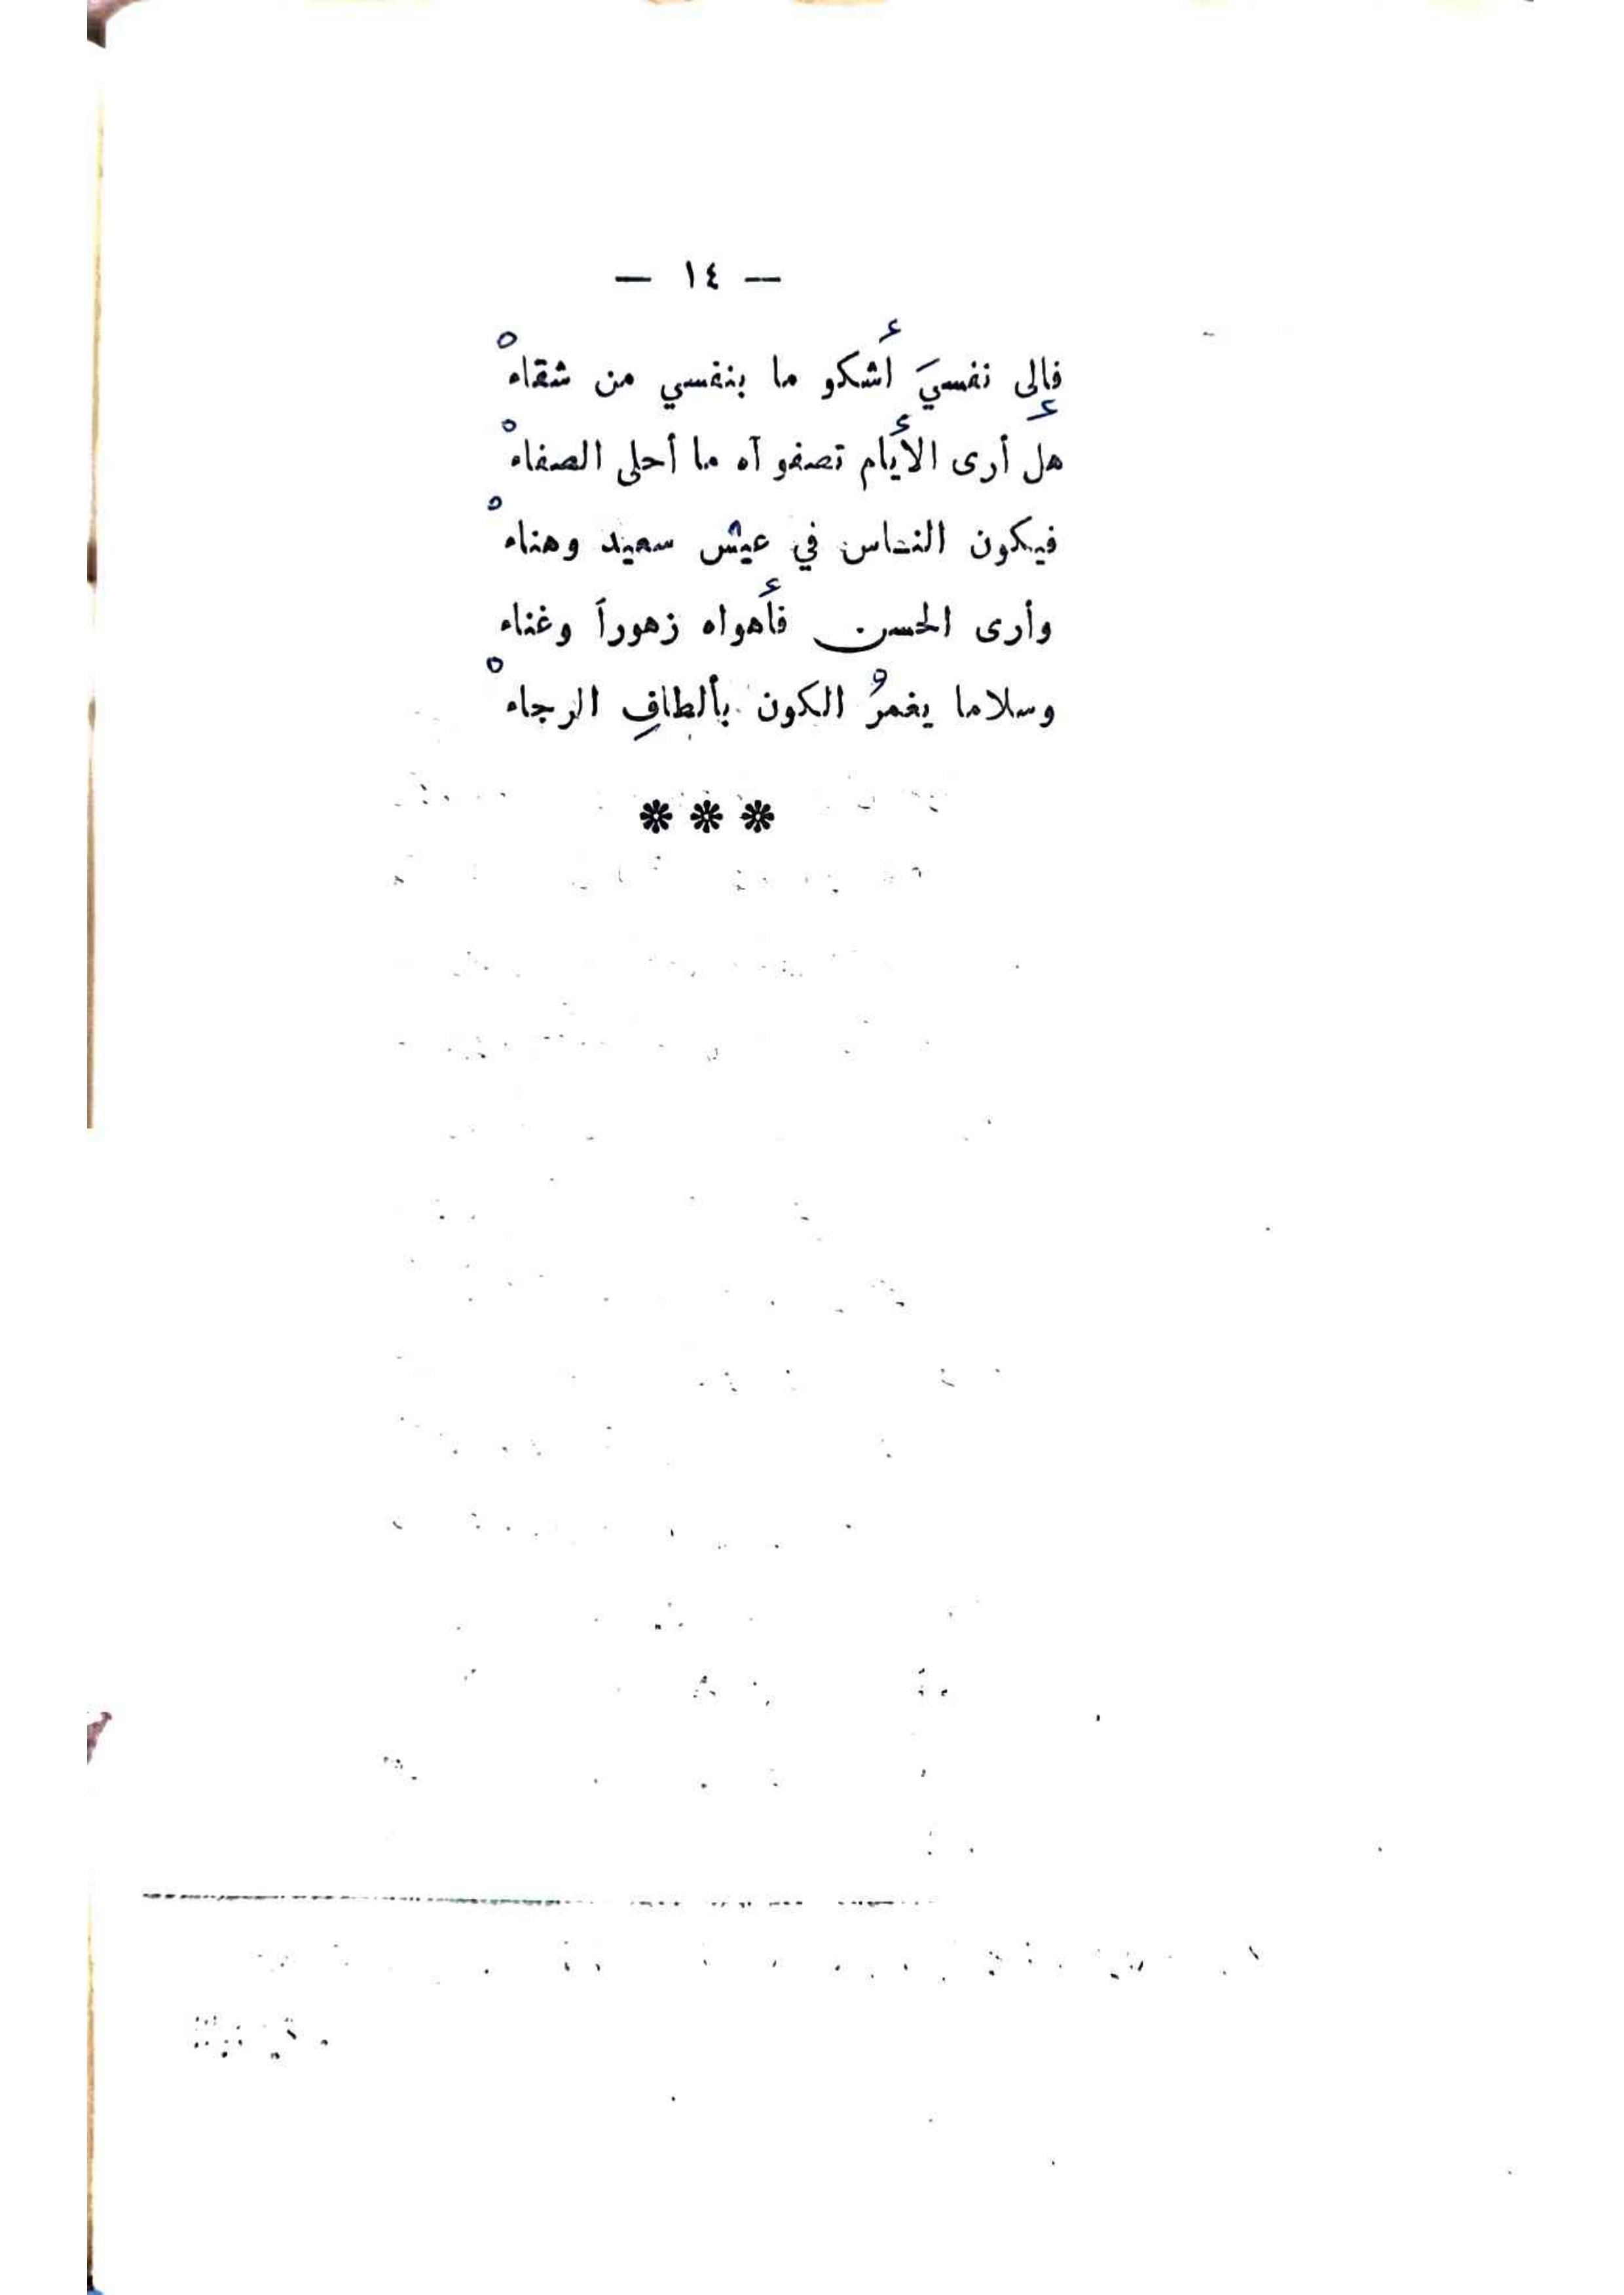 — ١٤ —
فإلى نفسيَ أشكو ما بنفسي من شقاءْ
هل أرى الأيام تصفو آه ما أحلى الصفاءْ
فيكون الناس في عيش سعيد وهناءْ
وأرى الحسن فأهواه زهوراً وغناء
وسلاما يغمرُ الكون بألطافِ الرجاءْ
***